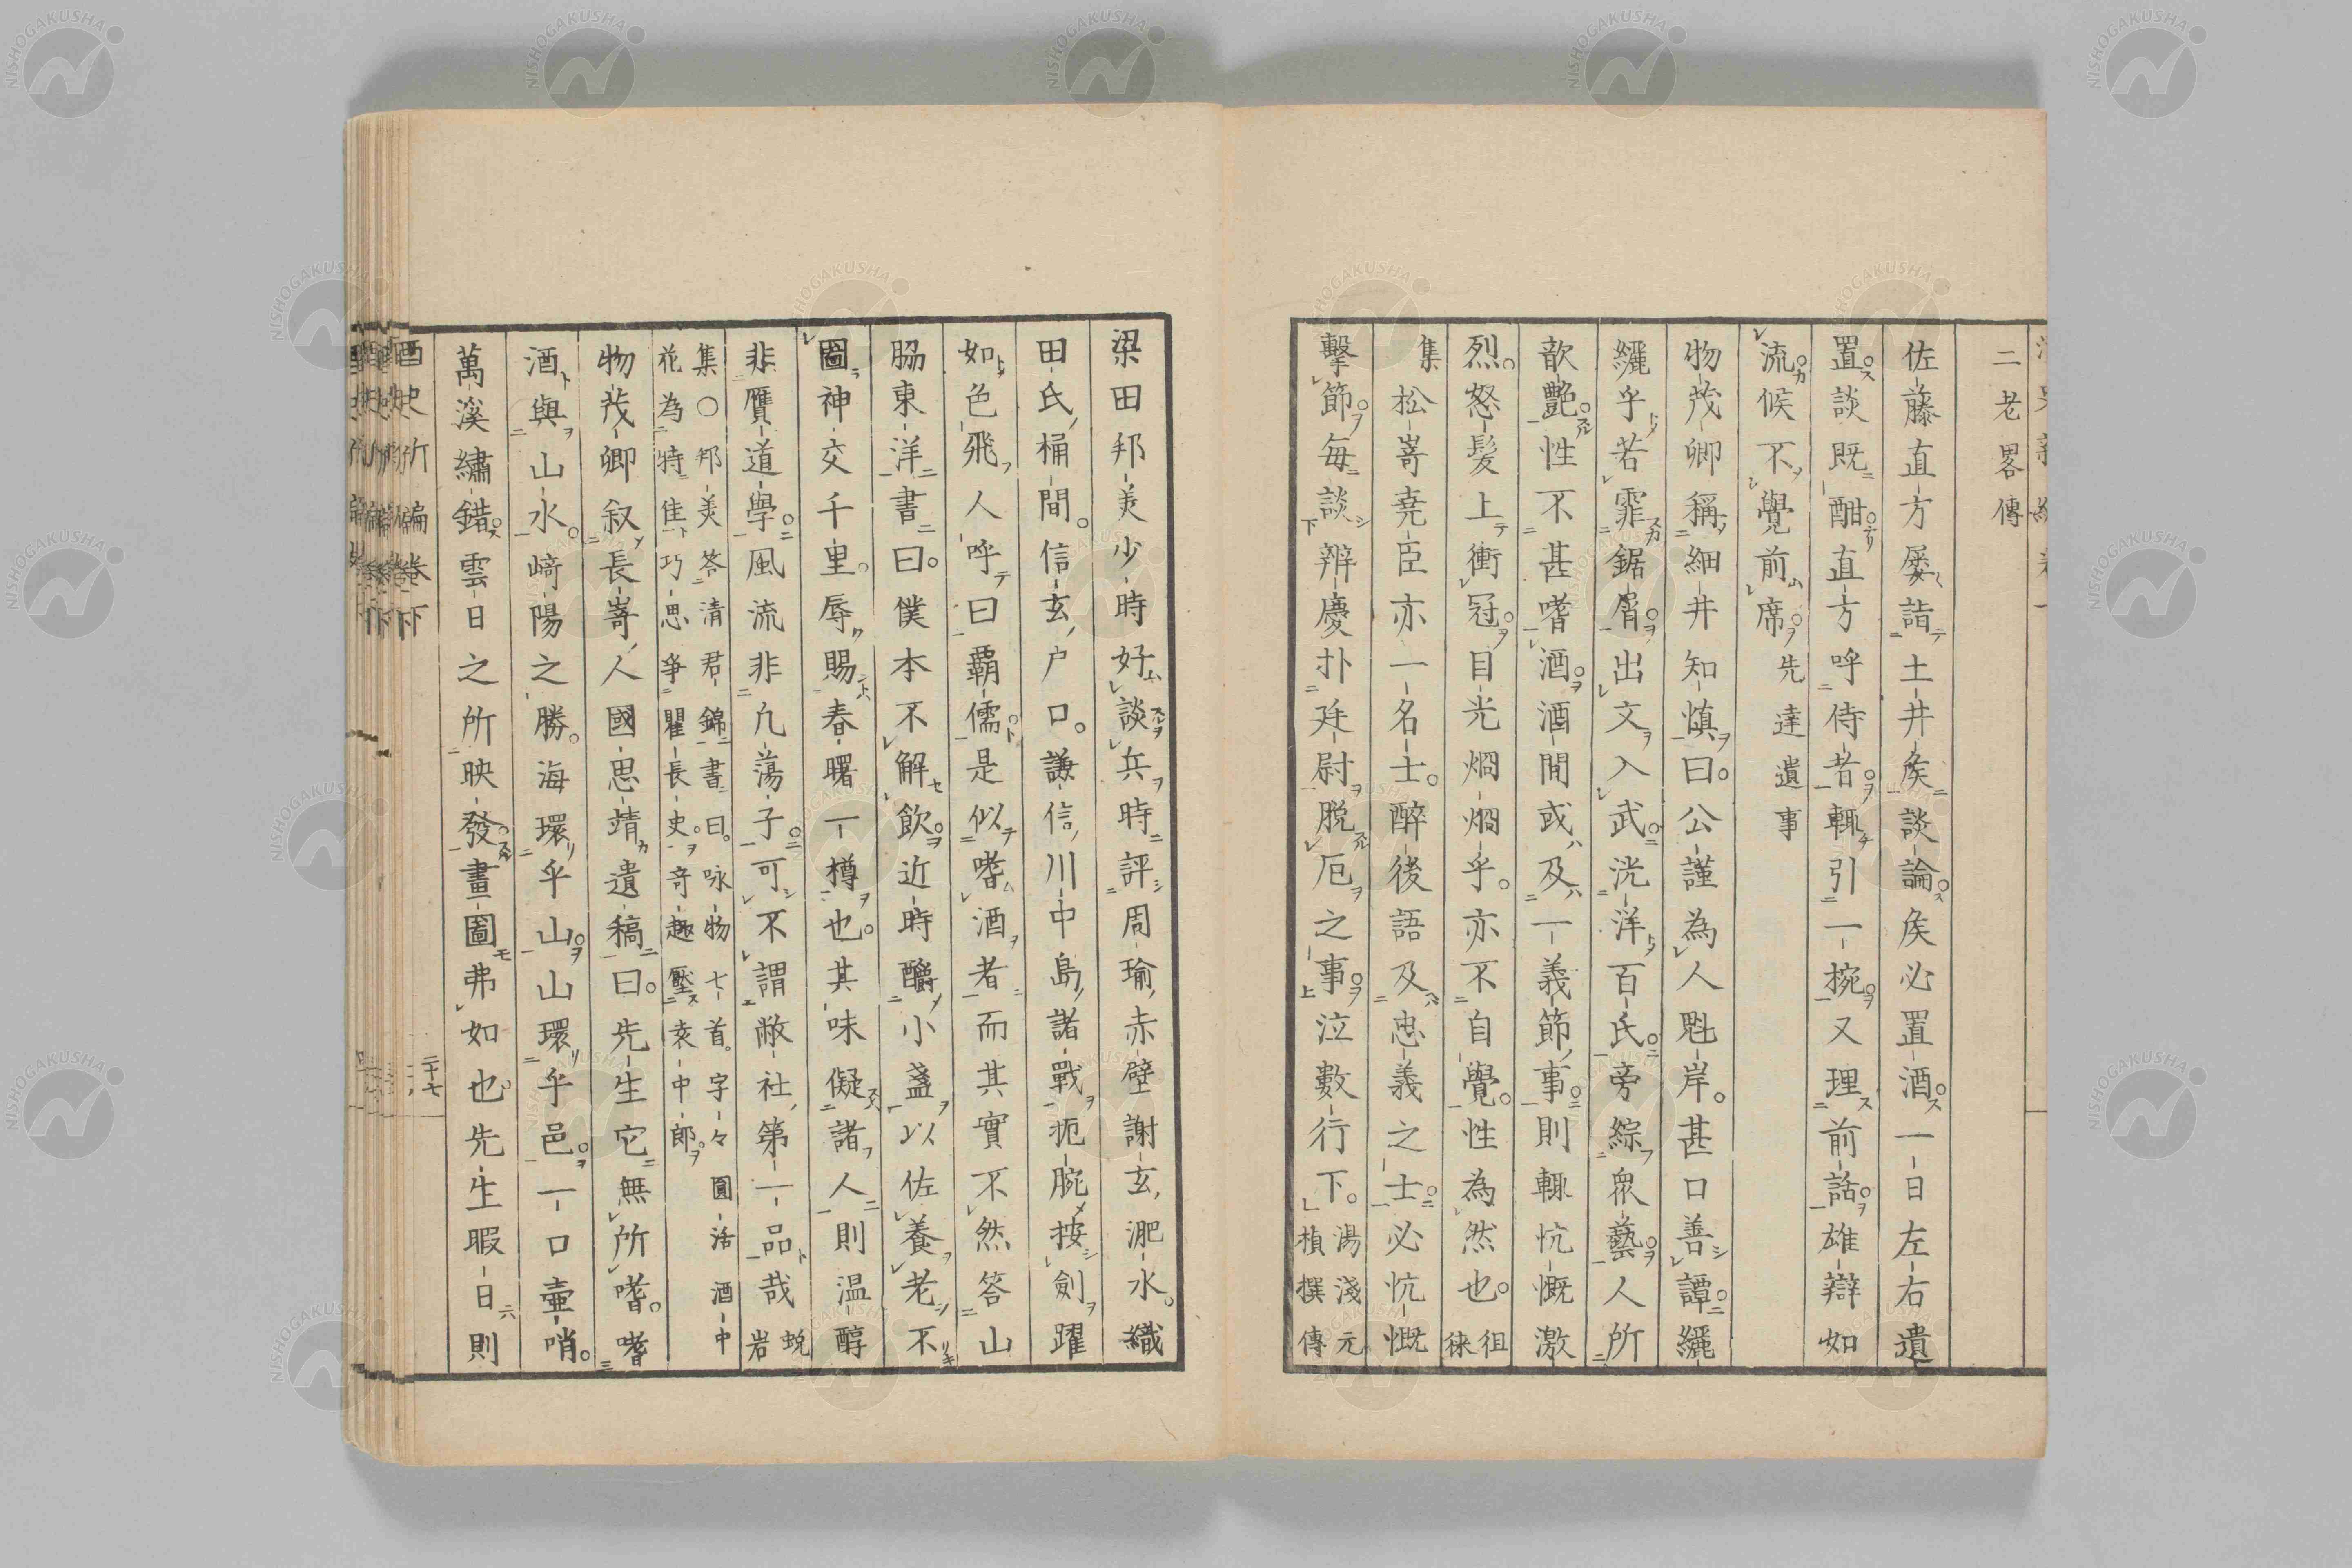 二老畧傳
佐藤直方屡詣土井矦談論矦必置酒一日左右遺
置談既酣直方呼侍者輙引一椀又理前話雄辯如
流候不覺前席先達遺事
物茂卿稱細井知慎曰公謹為人魁岸甚口善譚纚
纚乎若霏鋸屑出文入武洸洋百氏旁綜衆藝人所
歆艶性不甚嗜酒酒間或及一義節事則輙忼慨激
烈怒髮上衝冠目光烱烱乎亦不自覺性為然也徂徠
集松嵜堯臣亦一名士醉後語及忠義之士必忼慨
擊節每談辨慶扑廷尉脱厄之事泣數行下湯淺元禎撰傳
梁田邦美少時好談兵時評周瑜赤壁謝玄淝水織
田氏桶間信玄戸口謙信川中島諸戰扼腕按劍躍
如色飛人呼曰覇儒是似嗜酒者而其實不然答山
脇東洋書曰僕本不解飲近時釂小盞以佐養老不
圖神交千里辱賜春曙一樽也其味儗諸人則温醇
非贋道學風流非凢蕩子可不謂敝社第一品哉蛻岩
集〇邦美答清君錦書曰咏物七首字々圓活酒中
花為特佳巧思爭瞿長史奇趣壓袁中郎
物茂卿叙長嵜人國思靖遺稿曰先生它無所嗜嗜
酒與山水﨑陽之勝海環乎山山環乎邑一口壷哨
萬溪繡錯雲日之所映發畫圖弗如也先生暇日則
酒史所編卷下
二十七
NISHOGAKUSHA